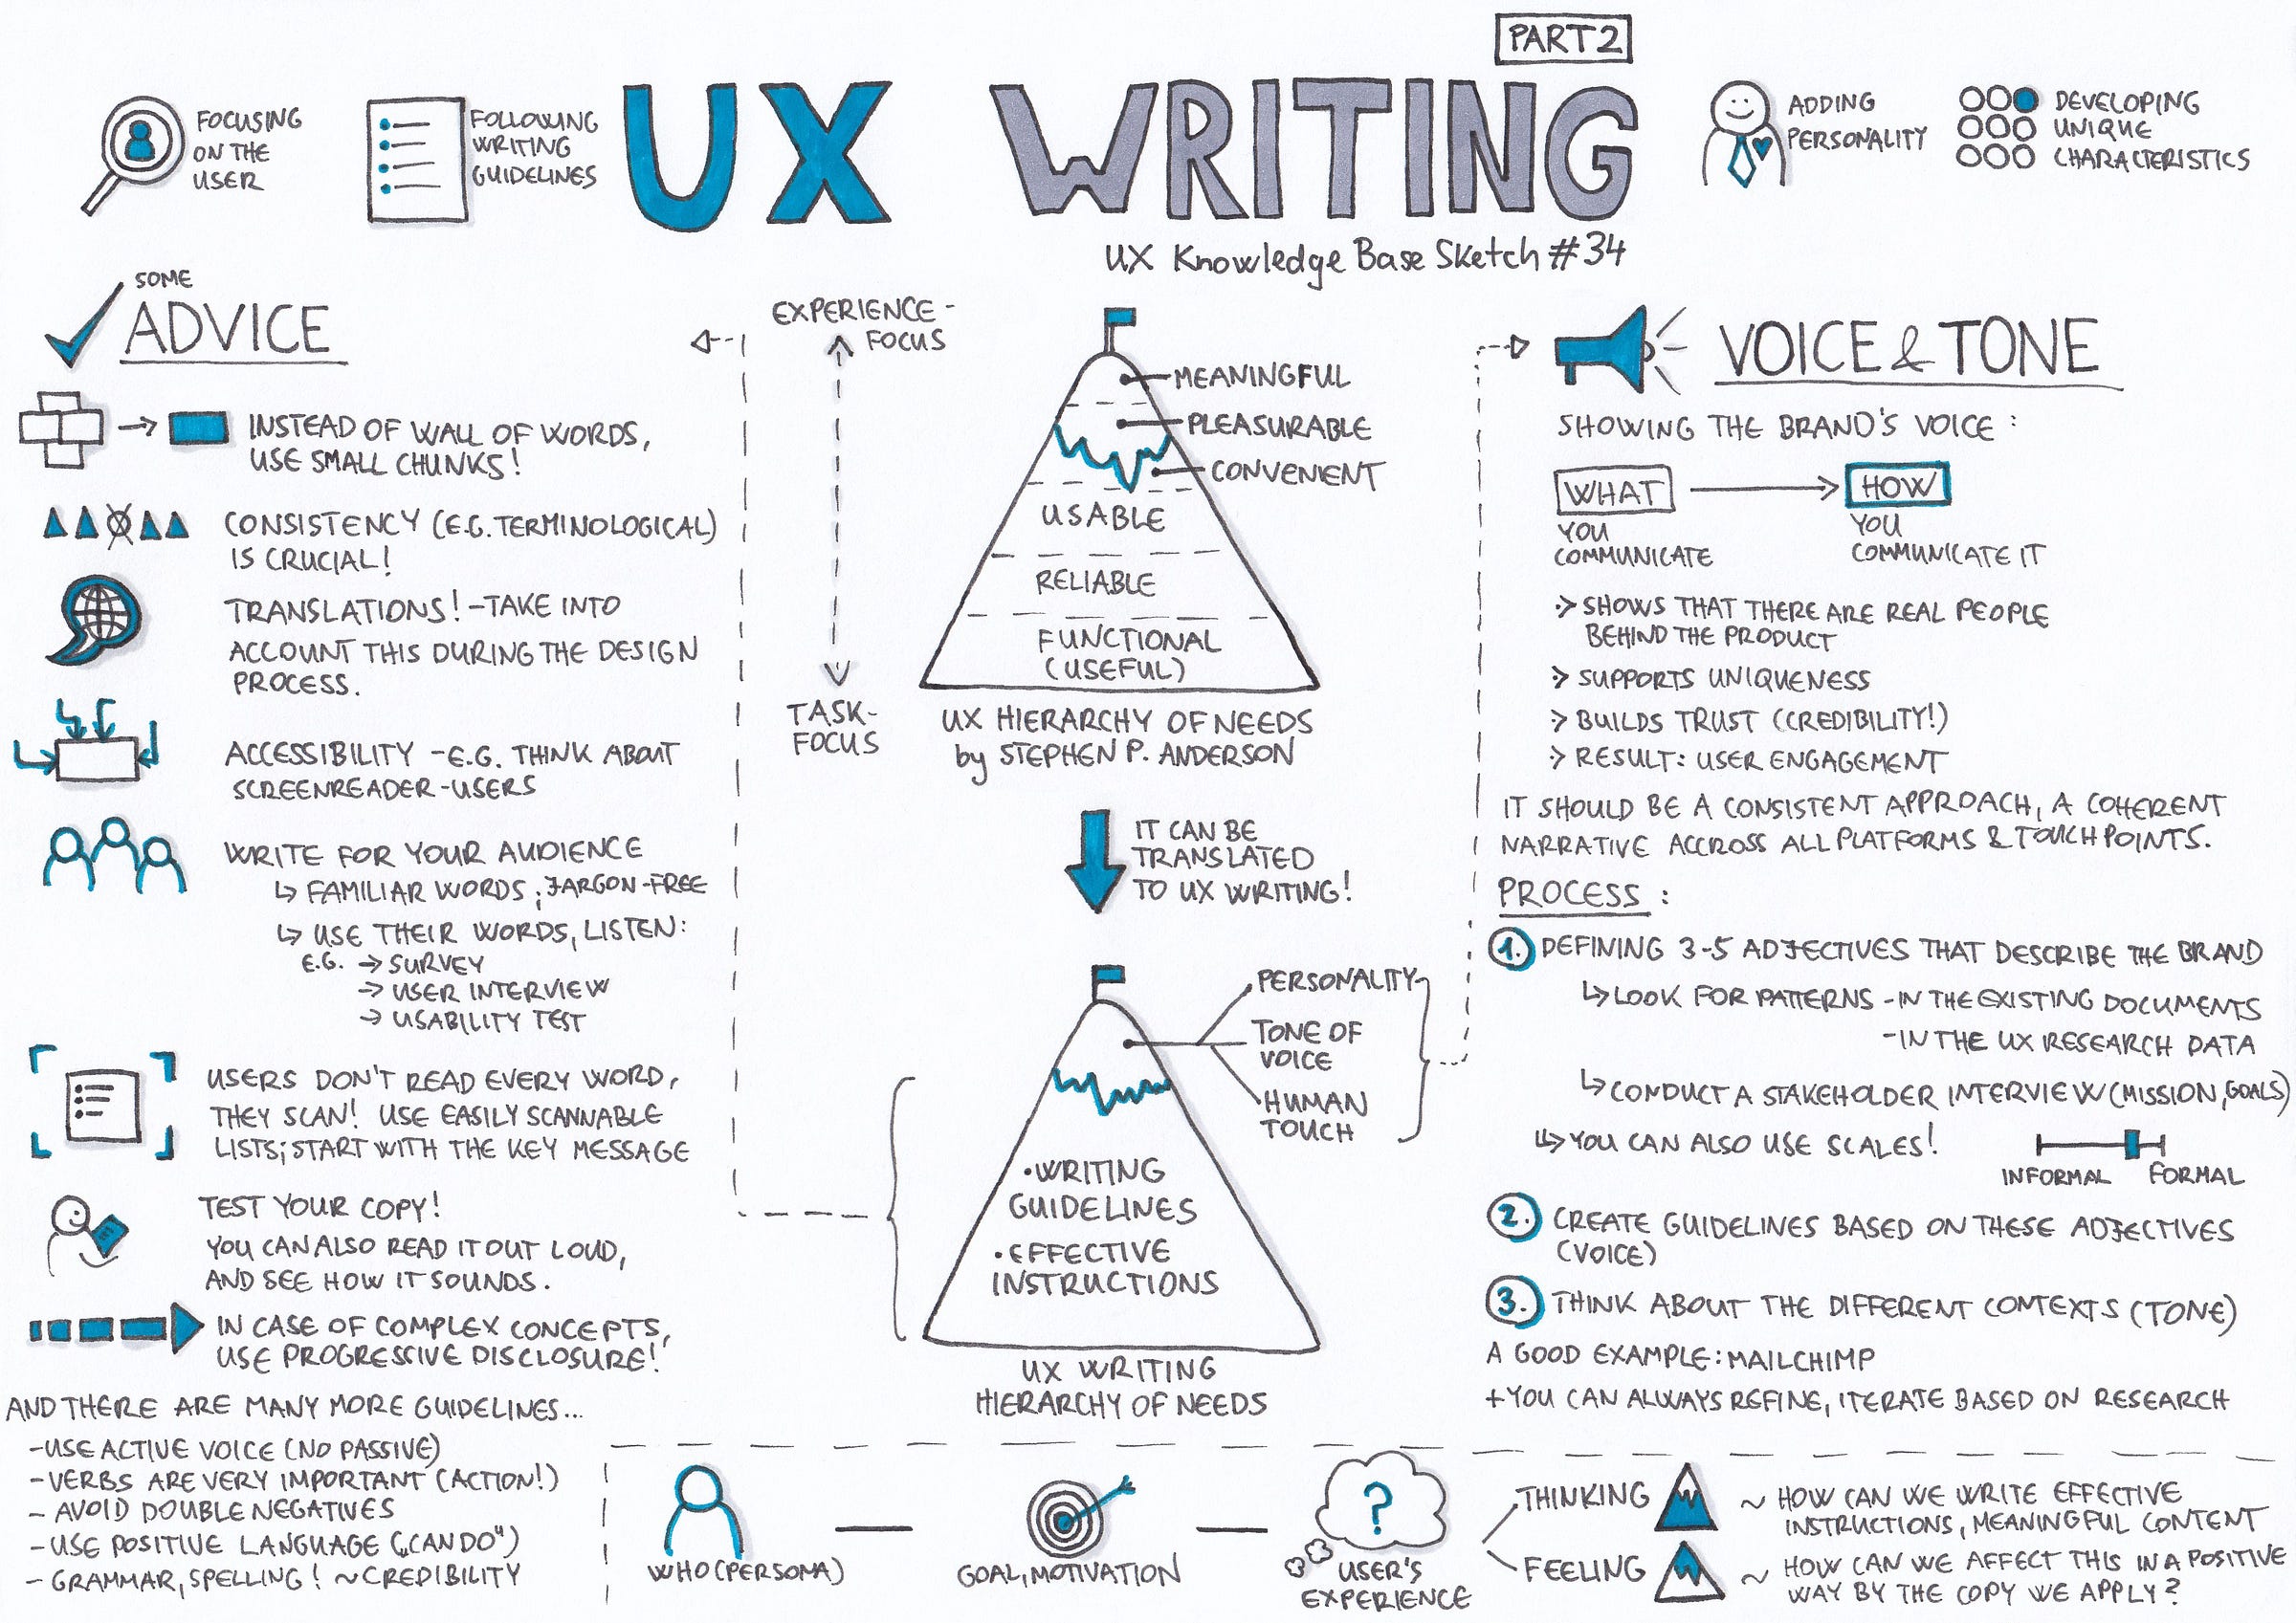 PART 2
FOCUSING
ON THE
USER
FOLLOWING
WRITING
GUIDELINES
UX WRITING
ADDING
PERSONALITY
DEVELOPING
UNIQUE
CHARACTERISTICS
UX Knowledge Base Sketch #34
SOME
ADVICE
INSTEAD OF WALL OF WORDS,
USE SMALL CHUNKS!
CONSISTENCY (E.G. TERMINOLOGICAL)
IS CRUCIAL!
TRANSLATIONS! - TAKE INTO
ACCOUNT THIS DURING THE DESIGN
PROCESS.
ACCESSIBILITY - E.G. THINK ABOUT
SCREENREADER-USERS
WRITE FOR YOUR AUDIENCE
↳ FAMILIAR WORDS; JARGON-FREE
↳ USE THEIR WORDS, LISTEN:
E.G. → SURVEY
→ USER INTERVIEW
→ USABILITY TEST
USERS DON'T READ EVERY WORD,
THEY SCAN! USE EASILY SCANNABLE
LISTS; START WITH THE KEY MESSAGE
TEST YOUR COPY!
YOU CAN ALSO READ IT OUT LOUD,
AND SEE HOW IT SOUNDS.
IN CASE OF COMPLEX CONCEPTS,
USE PROGRESSIVE DISCLOSURE!
AND THERE ARE MANY MORE GUIDELINES...
- USE ACTIVE VOICE (NO PASSIVE)
- VERBS ARE VERY IMPORTANT (ACTION!)
- AVOID DOUBLE NEGATIVES
- USE POSITIVE LANGUAGE („CAN DO")
- GRAMMAR, SPELLING! ~ CREDIBILITY
EXPERIENCE-
FOCUS
TASK-
FOCUS
MEANINGFUL
PLEASURABLE
CONVENIENT
USABLE
RELIABLE
FUNCTIONAL
(USEFUL)
UX HIERARCHY OF NEEDS
by STEPHEN P. ANDERSON
IT CAN BE
TRANSLATED
TO UX WRITING!
PERSONALITY
TONE OF
VOICE
HUMAN
TOUCH
• WRITING
GUIDELINES
• EFFECTIVE
INSTRUCTIONS
UX WRITING
HIERARCHY OF NEEDS
VOICE & TONE
SHOWING THE BRAND'S VOICE:
WHAT
YOU
COMMUNICATE
HOW
YOU
COMMUNICATE IT
> SHOWS THAT THERE ARE REAL PEOPLE
BEHIND THE PRODUCT
> SUPPORTS UNIQUENESS
> BUILDS TRUST (CREDIBILITY!)
> RESULT: USER ENGAGEMENT
IT SHOULD BE A CONSISTENT APPROACH, A COHERENT
NARRATIVE ACCROSS ALL PLATFORMS & TOUCHPOINTS.
PROCESS:
1. DEFINING 3-5 ADJECTIVES THAT DESCRIBE THE BRAND
↳ LOOK FOR PATTERNS - IN THE EXISTING DOCUMENTS
- IN THE UX RESEARCH DATA
↳ CONDUCT A STAKEHOLDER INTERVIEW (MISSION, GOALS)
↳ YOU CAN ALSO USE SCALES!
INFORMAL FORMAL
2. CREATE GUIDELINES BASED ON THESE ADJECTIVES
(VOICE)
3. THINK ABOUT THE DIFFERENT CONTEXTS (TONE)
A GOOD EXAMPLE: MAILCHIMP
+ YOU CAN ALWAYS REFINE, ITERATE BASED ON RESEARCH
WHO (PERSONA)
GOAL, MOTIVATION
?
USER'S
EXPERIENCE
THINKING
~ HOW CAN WE WRITE EFFECTIVE
INSTRUCTIONS, MEANINGFUL CONTENT
FEELING
~ HOW CAN WE AFFECT THIS IN A POSITIVE
WAY BY THE COPY WE APPLY?